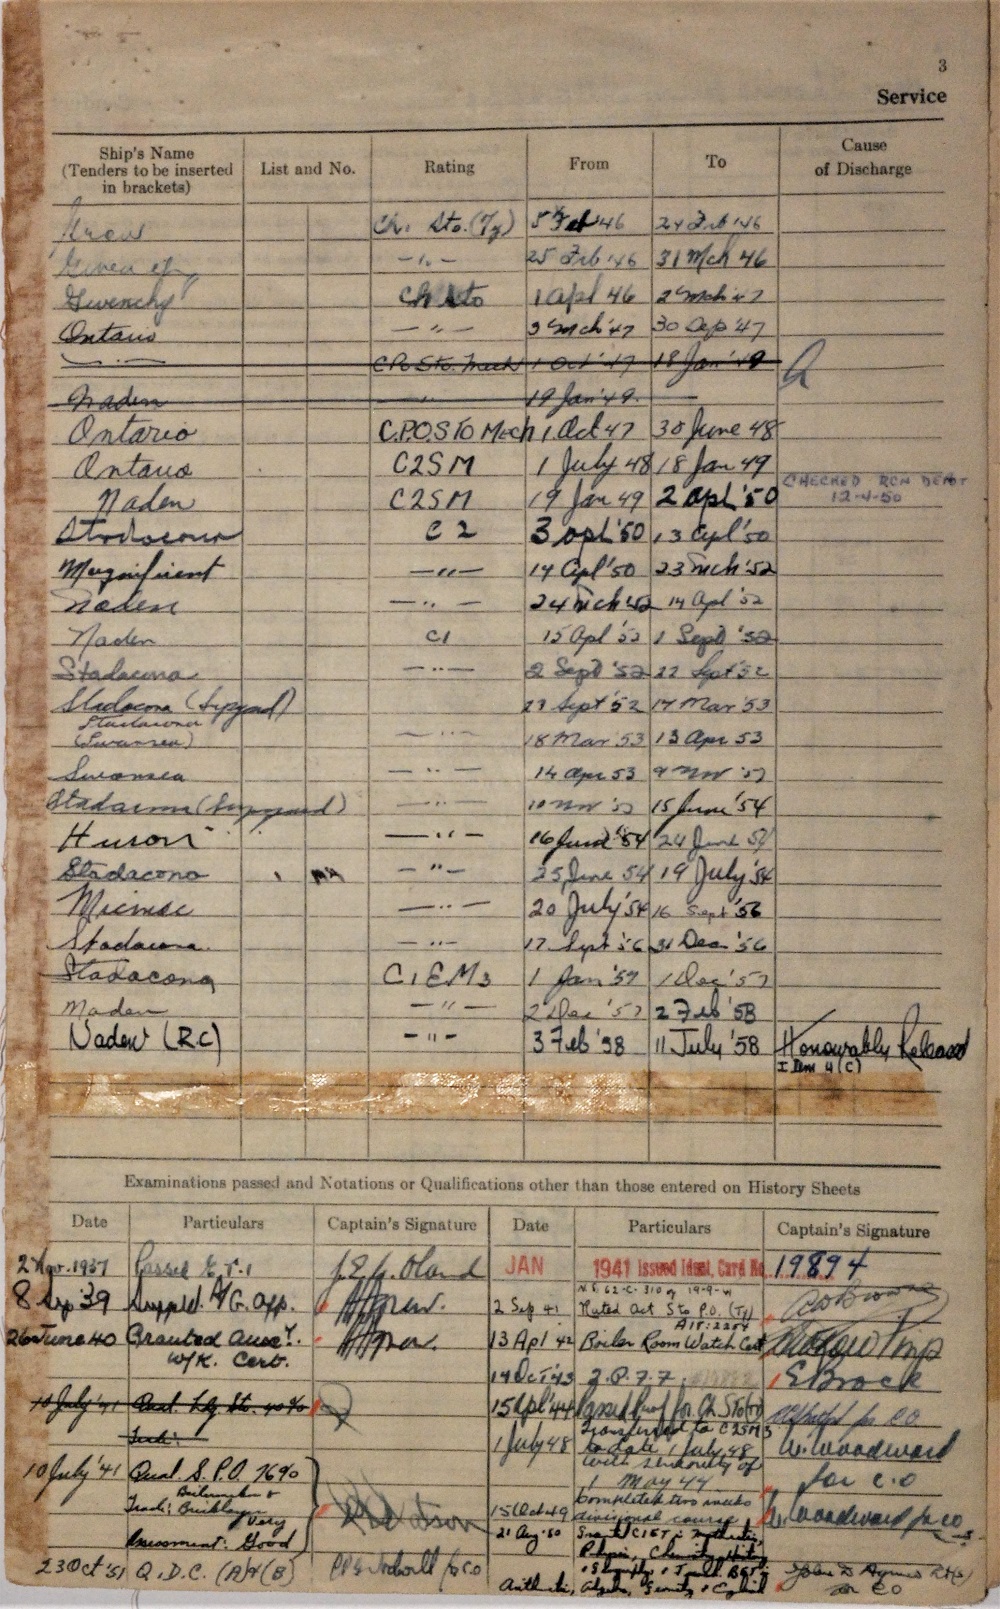 3
Service
Ship's Name (Tenders to be inserted in brackets) List and No. Rating From To Cause of Discharge
Ch. Sto. (Ty) 5 Feb '46 24 Feb '46
— " — 25 Feb '46 31 Mch 46
Givenchy Ch Sto 1 Apl 46 2 Mch '47
Ontario — " — 3 Mch '47 30 Sep '47
— " — C.P.O. Sto. Mech 1 Oct '47 18 Jan '49
Naden " 19 Jan '49. —
Ontario C.P.O. STO Mech 1 Oct 47 30 June 48
Ontario C2SM 1 July 48 18 Jan 49
CHECKED RCN DEPOT
Naden C2SM 19 Jan 49 2 Apl '50 12-4-50
Stadacona C2 3 Apl '50 13 Apl '50
Magnificent — " — 14 Apl '50 23 Mch '52
Naden — " — 24 Mch '52 14 Apl '52
Naden C1 15 Apl '52 1 Sept '52
Stadacona — " — 2 Sept '52 22 Sept '52
Stadacona 23 Sept '52 17 Mar '53
Stadacona
(Swansea) — " — 18 Mar '53 13 Apr 53
Swansea — " — 14 Apr 53 9 Nov '53
Stadacona — " — 10 Nov '53 15 June '54
Huron — " — 16 June '54 24 June 54
Stadacona — " — 25 June 54 19 July '54
Micmac — " — 20 July '54 16 Sept '56
Stadacona — " — 17 Sept '56 31 Dec '56
Stadacona C1EM3 1 Jan '57 1 Dec '57
Naden — " — 2 Dec '57 2 Feb '58
Naden (R.C) — " — 3 Feb '58 11 July '58 Honourably Released
Item 4 (C)
Examinations passed and Notations or Qualifications other than those entered on History Sheets
Date Particulars Captain's Signature Date Particulars Captain's Signature
2 Nov. 1937 Passed E.T.1 J.E.W. Oland JAN 1941 Issued Ident. Card No. 19894
8 Sep '39 Suppld. A/G. App. 2 Sep 41 Rated Act Sto P.O. (Ty)
26 June 40 Granted Auxy. W/K. Cert. 13 Apl 42 Boiler Room Watch Cert
14 Oct '43 E Brock
10 July '41 Qual. Ldg. Sto. 40% 15 Apl '44 Passed Prof for Ch. Sto for CO
Tech:
1 July 48 Transferred to C2SM3 to date 1 July 48 with seniority of 1 May 44 W. Woodward for C.O
10 July '41 Qual. S.P.O. 76%
Boilermaker &
Trade: Bricklayer
Very
Assessment: Good
15 Oct 49 Completed two weeks divisional course W. Woodward for CO
21 Aug '50
Physics, Chemistry, History
23 Oct '51 Q.D.C. (A)&(B) for CO
for CO